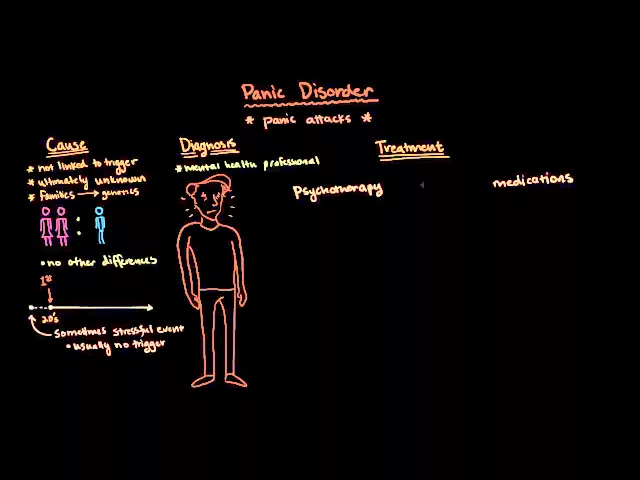 Panic Disorder
* panic attacks *
Cause
* not linked to trigger
* ultimately unknown
* Families → genetics
:
• no other differences
1st
20's
Sometimes stressful event
• usually no trigger
Diagnosis
* mental health professional
Treatment
Psychotherapy
medications